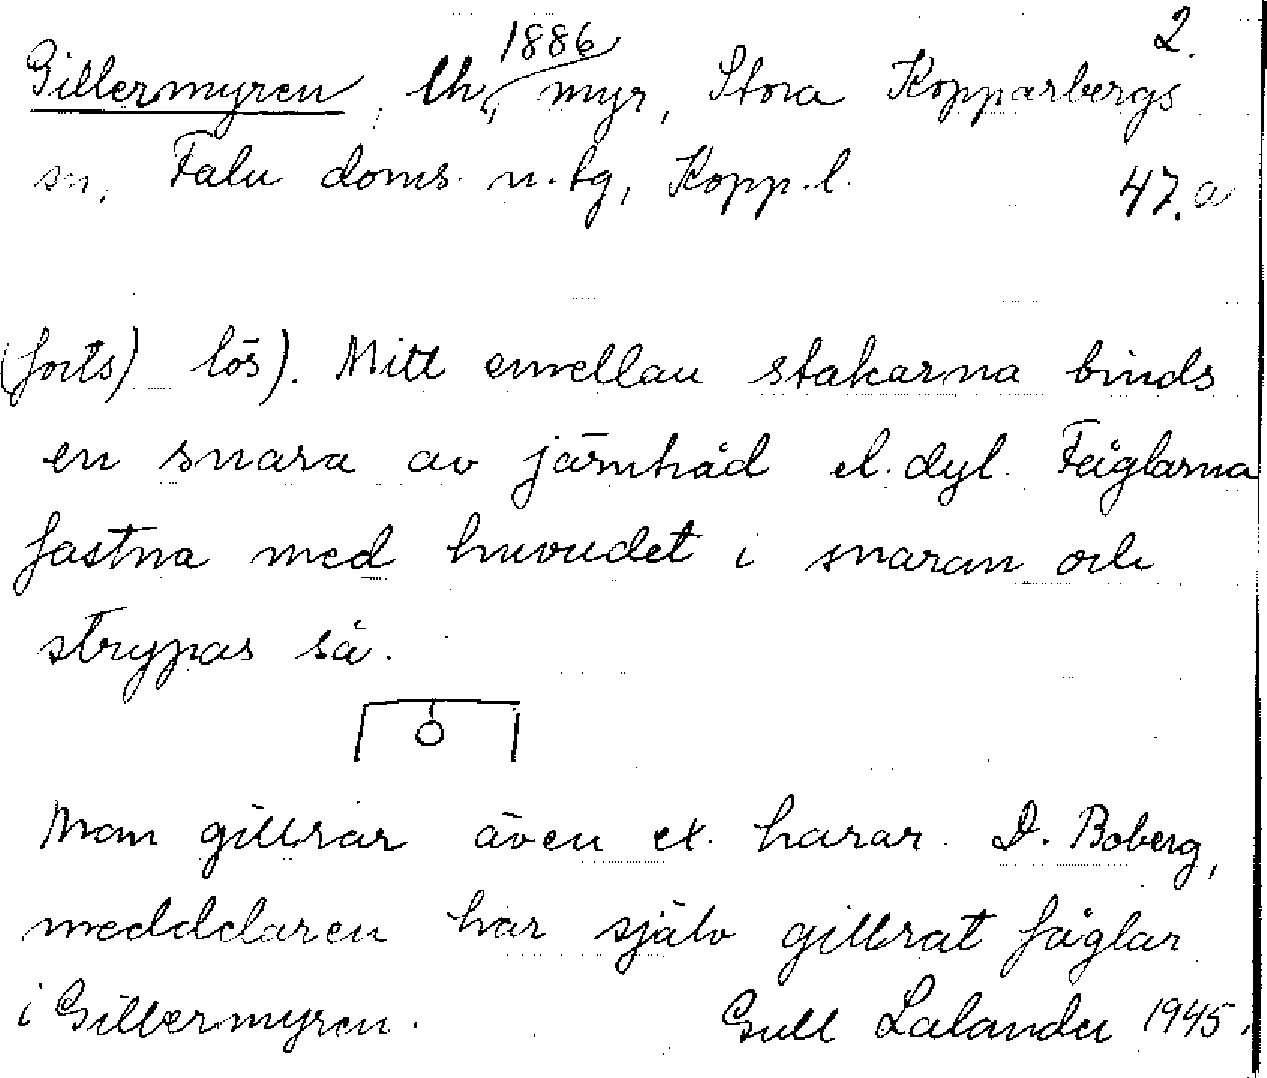 2.
1886
Gillermyren, th, myr, Stora Kopparbergs
sn, Falu doms. n. tg, Kopp. l.
47.a
(forts) lös). Mitt emellan stakarna binds
en snara av järntråd el. dyl. Fåglarna
fastna med huvudet i snaran och
strypas så.
Man gillrar även ex. harar. D. Boberg,
meddelaren har själv gillrat fåglar
i Gillermyren. Gull Lalander 1945.